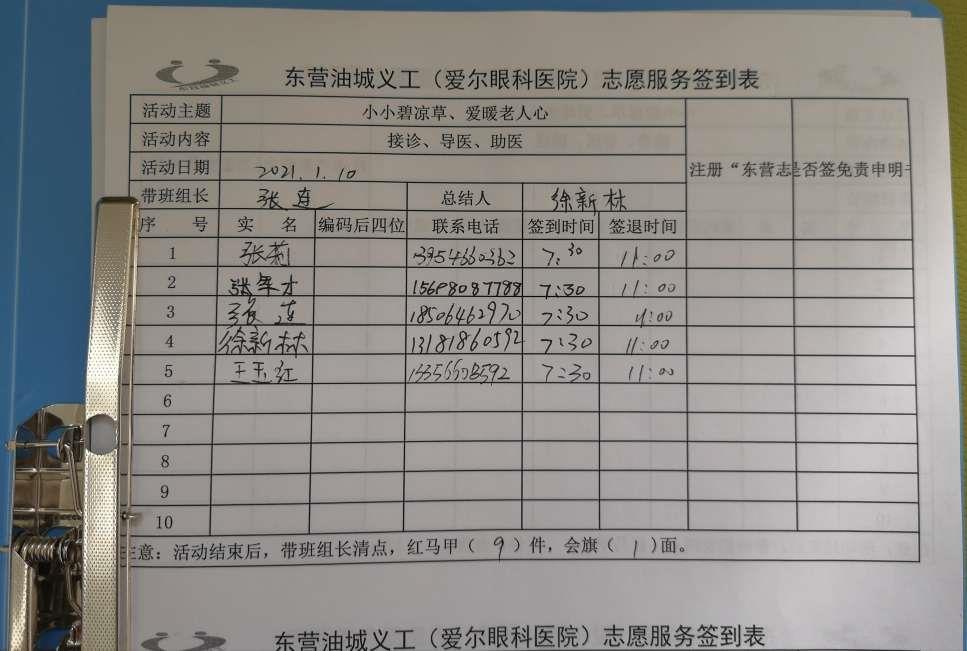 东营油城义工（爱尔眼科医院）志愿服务签到表
活动主题 小小碧凉草、爱暖老人心
活动内容 接诊、导医、助医
活动日期 2021.1.10 注册“东营志 是否签免责申明书
带班组长 张连 总结人 徐新林
序 号 实 名 编码后四位 联系电话 签到时间 签退时间
1 张莉 13954660362 7:30 11:00
2 张军才 15698087788 7:30 11:00
3 张连 18506462970 7:30 11:00
4 徐新林 13181860592 7:30 11:00
5 王玉红 7:30 11:00
6
7
8
9
10
注意：活动结束后，带班组长清点，红马甲（ 9 ）件，会旗（ 1 ）面。
东营油城义工（爱尔眼科医院）志愿服务签到表